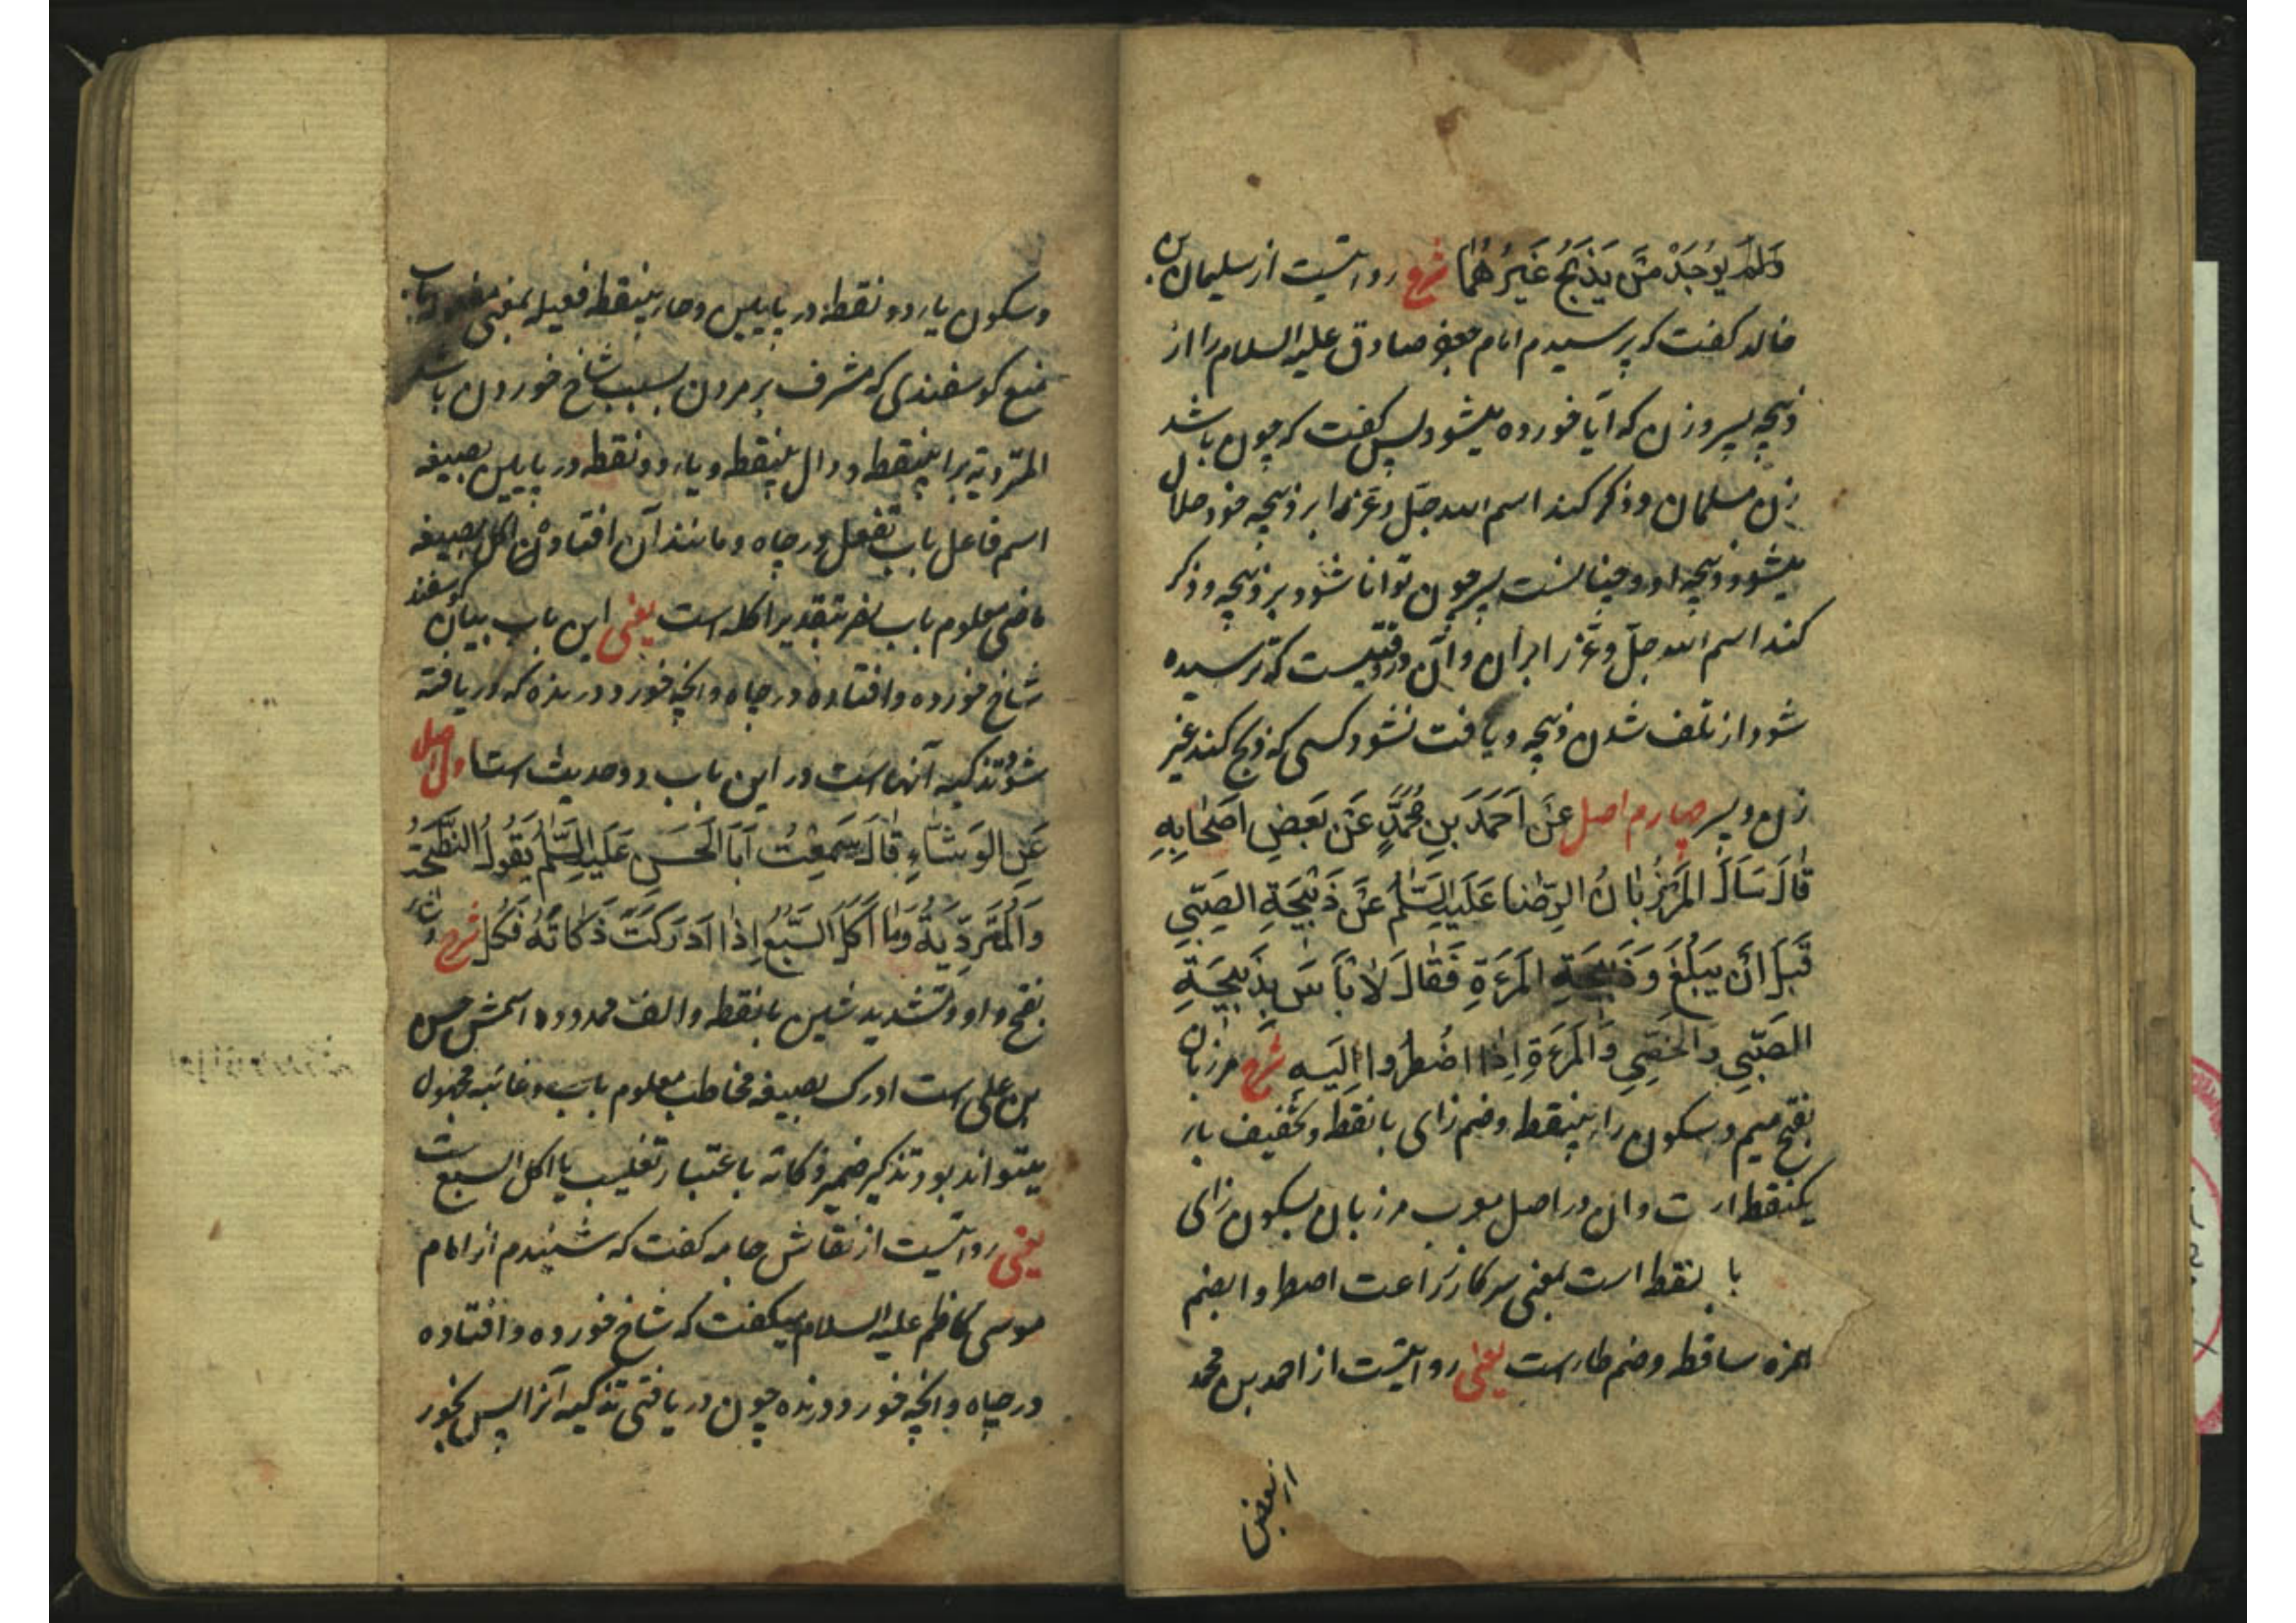 وَلَمْ يُوجَدْ مَنْ يَذْبَحُ غَيْرُهُمَا شرح روایتست از سلیمان بن
خالد گفت که پرسیدم امام جعفر صادق علیه السلام را از
ذبیحه پسر و زن که آیا خورده میشود پس گفت که چون باشد
زن مسلمان و ذکر کند اسم الله جلّ و عزّ را بر ذبیحه خود حلال
میشود ذبیحه او و چنانست پسر چون توانا شود بر ذبیحه و ذکر
کند اسم الله جلّ و عزّ را بران و آن در وقتیست که ترسیده
شود از تلف شدن ذبیحه و یافت نشود کسی که ذبح کند غیر
زن و پسر چهارم اصل عَنْ اَحْمَدَ بنِ مُحَمَّدٍ عَنْ بَعضِ اَصْحٰابِهِ
قٰالَ سَاَلَ المَرْزُبٰانُ الرِّضٰا عَلَيهِ السَّلٰمُ عَنْ ذَبٖيحَةِ الصَّبِّي
قَبْلَ اَنْ يَبْلُغَ وَ ذَبٖيحَةِ المَرْءَةِ فَقٰالَ لٰا بَأسَ بِذَبٖيحَةِ
الصَّبِّي وَ الْخَصِّي وَ الْمَرْءَةِ اِذٰا اضْطُرُّوا اِلَيهِ شرح مرزبان
بفتح میم و سکون راء بینقطه و ضم زای با نقطه و تخفیف باء
یکنقطه است و ان در اصل معرب مرزبان بسکون زای
با نقطه است بمعنی سرکار زراعت اضطروا بضم
همزه ساقطه و ضم طاء است یعنی روایتست از احمد بن محمد
از بعض
و سکون یاء دو نقطه در پایین و حاء بینقطه فعیله بمعنی
منع گوسفندی که مشرف بر مردن بسبب شاخ خوردن باشد
المتردیة براء بینقطه و دال بینقطه و یاء دو نقطه در پایین بصیغه
اسم فاعل باب تفعل در چاه و مانند آن افتادن اکل بصیغه
ماضی معلوم باب نصر بتقدیر اکله است یعنی این باب بیان گوسفند
شاخ خورده و افتاده در چاه و انچه خورد درنده که دریافته
شود تذکیه آنهاست در این باب دو حدیث است اول اصل
عَنِ الوَشّٰاءِ قٰالَ سَمِعْتُ اَبَا الْحَسَنِ عَلَيهِ السَّلٰمُ يَقُولُ النَّطٖيحَةُ
وَ الْمُتَرَدِّيَةُ وَ مٰا اَكَلَ السَّبُعُ اِذٰا اَدْرَكْتَ ذَكٰاتَهُ فَكُلْ شرح وشاء
بفتح واو و تشدید شین با نقطه و الف ممدوده اسمش حسن
بن علی است ادرکت بصیغه مخاطب معلوم باب و غائبه مجهول
میتواند بود تذکیر ضمیر ذکاته باعتبار تغلیب یا اکل السبع است
یعنی روایتست از نقاش جامه گفت که شنیدم از امام
موسی کاظم علیه السلام میگفت که شاخ خورده و افتاده
در چاه و انچه خورد درنده چون دریافتی تذکیه آنرا پس بخور